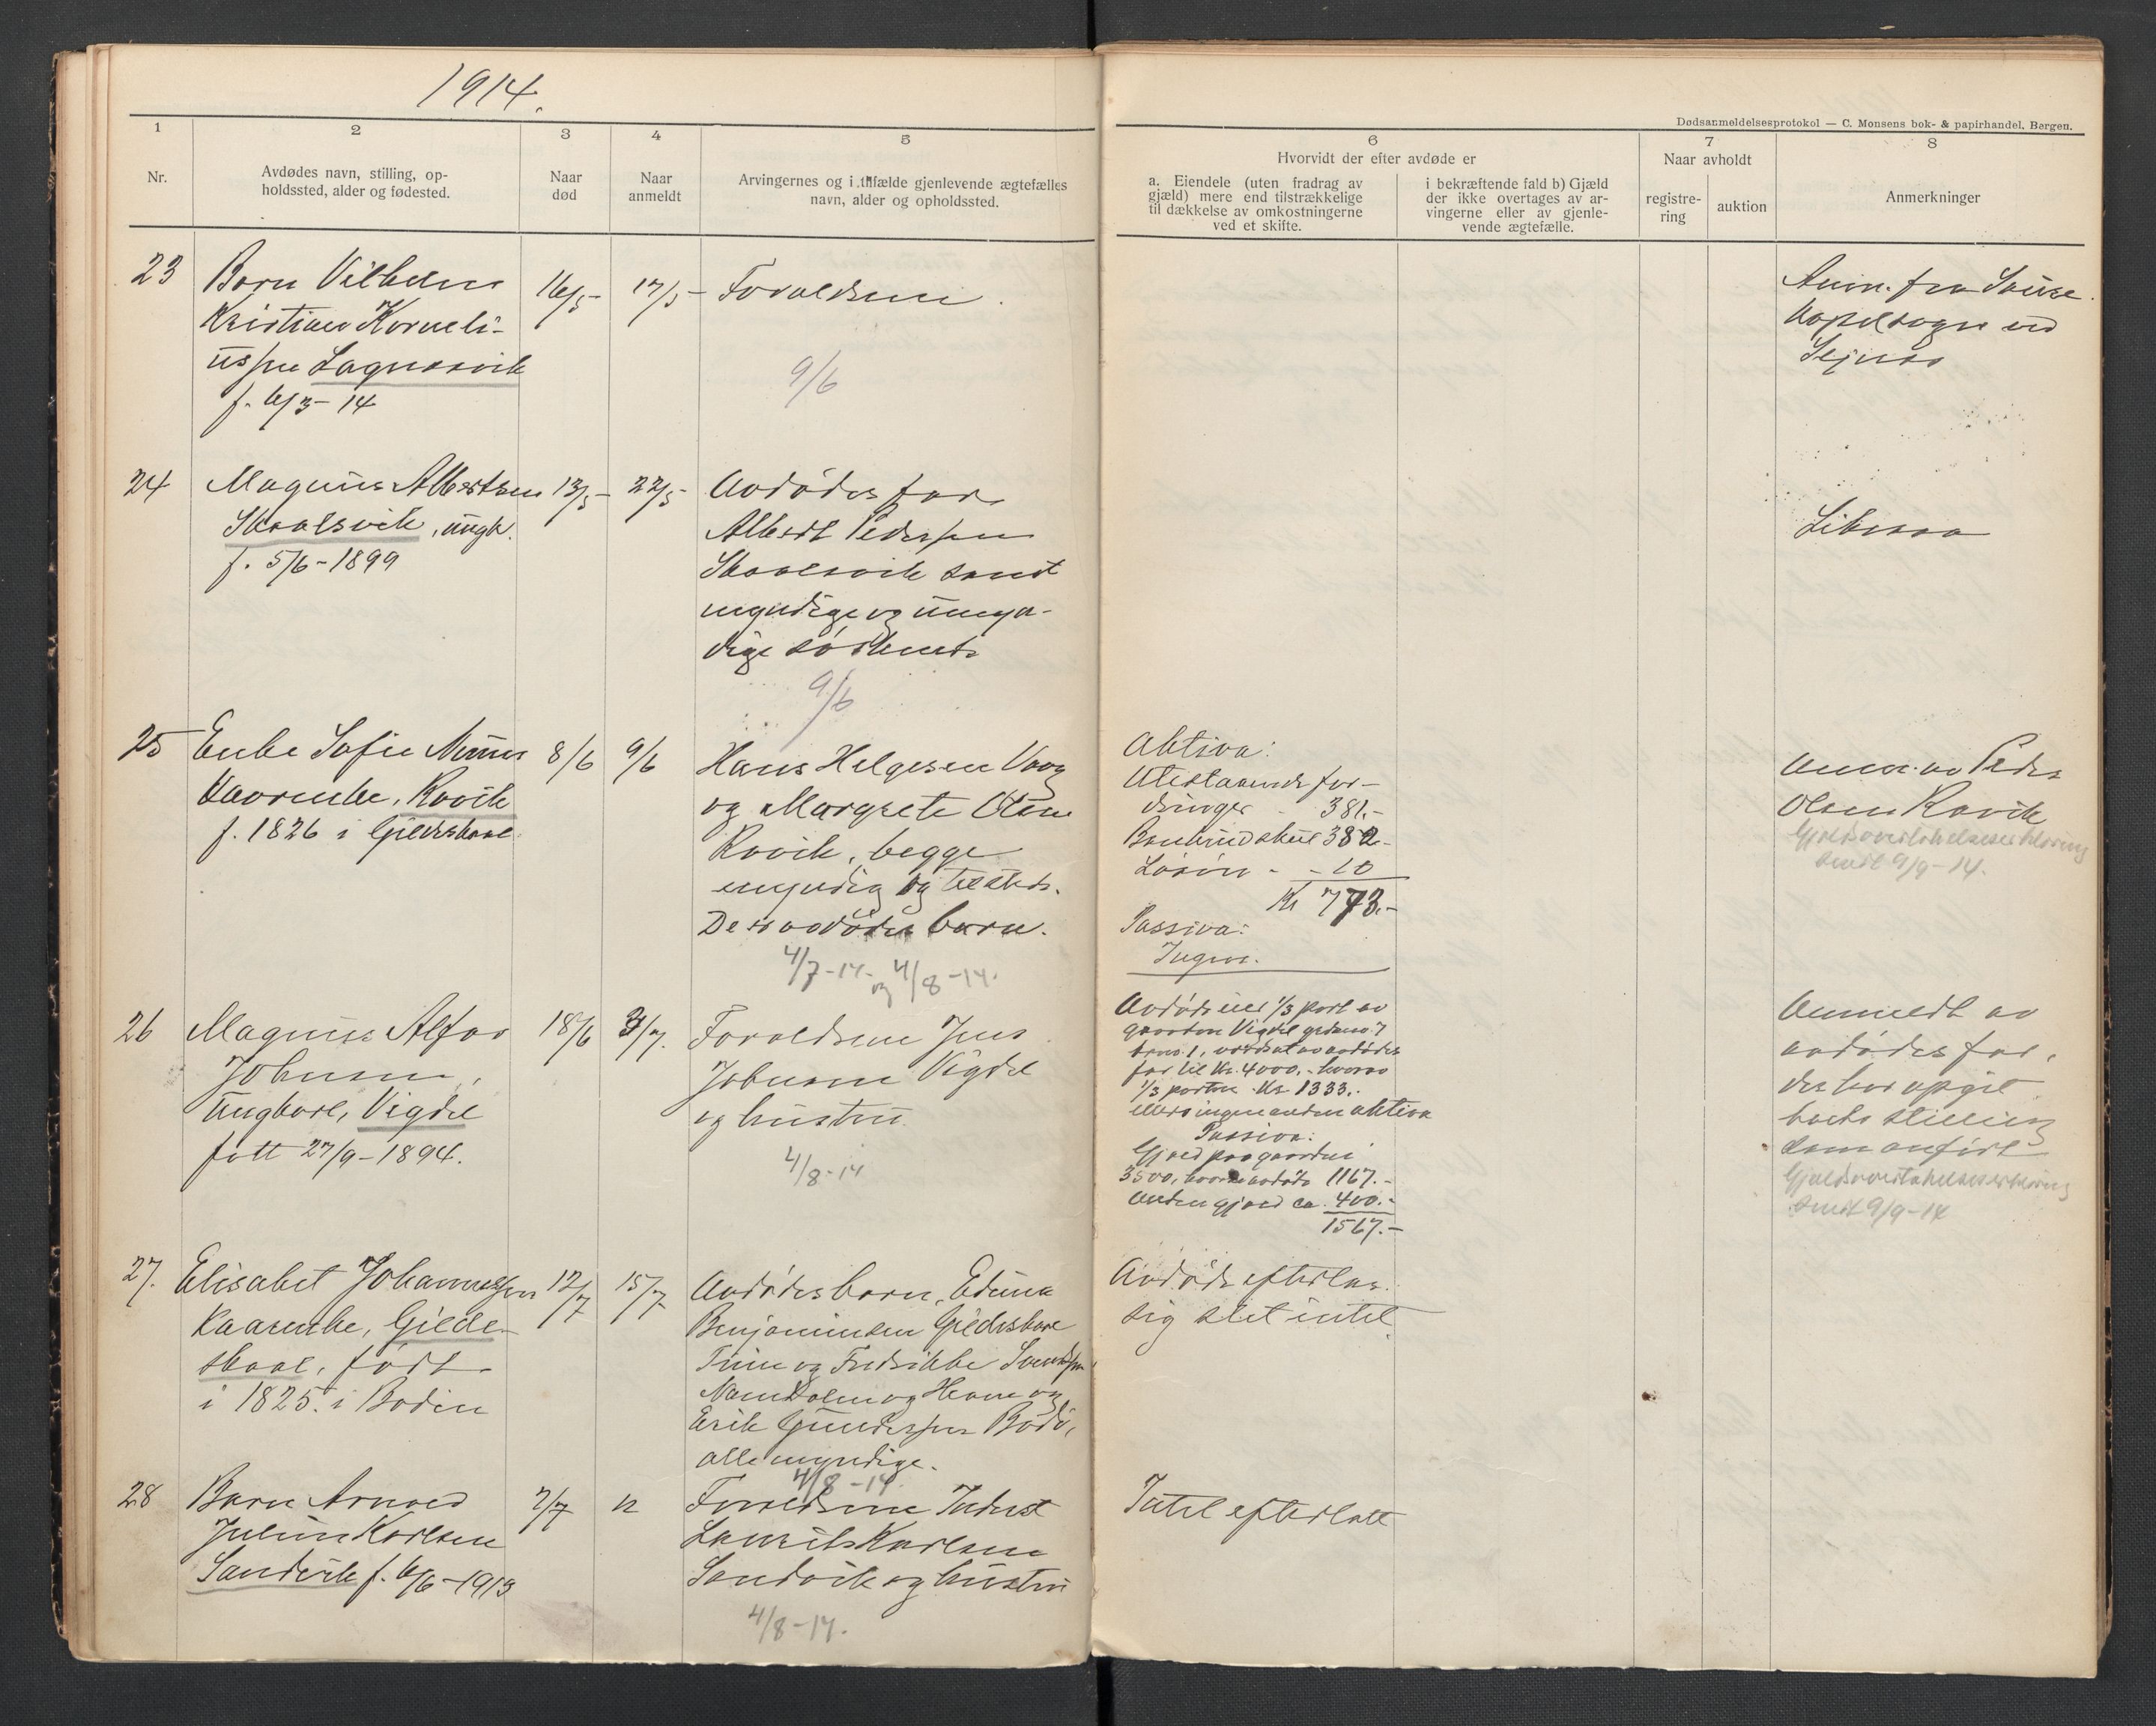 1914.
Dødsanmeldelsesprotokol — C. Monsens bok- & papirhandel, Bergen.
1 2 3 4 5 6 7 8
Nr.
Avdødes navn, stilling, op-
holdssted, alder og fødested.
Naar
død
Naar
anmeldt
Arvingernes og i tilfælde gjenlevende ægtefælles
navn, alder og opholdssted.
Hvorvidt der efter avdøde er
a. Eiendele (uten fradrag av
gjæld) mere end tilstrækkelige
til dækkelse av omkostningerne
ved et skifte.
i bekræftende fald b) Gjæld
der ikke overtages av ar-
vingerne eller av gjenle-
vende ægtefælle.
Naar avholdt
registre-
ring
auktion
Anmerkninger
23
Barn Vilhelm
Kristian Korneli-
ussen Lagnesvik
f. 6/3-14
16/5-
17/5-
Forældrene.
9/6
Anm. fra
kapelsogn ved
24
Magnus Albertsen
Skaalsvik, ungk.
f. 5/6-1899
13/5-
22/5-
Avdødes far
Albert Pedersen
Skaalsvik samt
myndige og umyn-
dige søskende
9/6
25
Enke Sofie
Kaarenke, Ravik
f. 1826 i Gildeskaal
8/6
9/6
Hans Helgesen Vaag
og Margrete Olsen
Ravik, begge
myndig og tilsteds.
De er avdødes barn.
4/7-14 og 4/8-14.
Aktiva:
Utestaaende for-
dringer - 381.-
382.-
Løsøre - - 10
Kr 773.-
Passiva:
Ingen.
Anm. av Peder
Olsen Ravik
Gjældsovertakelseserklæring
sendt 9/9-14.
26
Magnus Alfar
Johnsen,
Ungkarl, Vigdel
født 27/9-1894.
18/6
3/7.
Forældrene Jens
Johnsen Vigdel
og hustru
4/8-14
Avdøde eier 1/3 part av
gaarden Vigdel gardsno 7
brno. 1, værdsat av avdødes
far til Kr. 4000,- hvorav
1/3 parten Kr. 1333.-
ellers ingen anden aktiva
Passiva:
Gjæld paa gaarden
3500, hvorav avdøde 1167.-
Anden gjæld ca. 400.-
1567.-
Anmeldt av
avdødes far,
der har opgit
boets stilling
som anført
Gjældsovertakelseserklæring
sendt 9/9-14
27.
Elisabet Johannessen
Kaarenke, Gilde-
skaal, født
i 1825. i Bodin
12/7
15/7
Avdødes barn, Edvine
Benjaminsen Gildeskaal
Trine og Fredrikke
og
Erik Gundersen Bodø,
alle myndige.
4/8-14
Avdøde efterlar
sig slet intet
28
Barn Arnold
Julius Karlsen
Sandvik f. 6/6-1913
7/7
Forældrene Indert
Laurits Karlsen
Sandvik og hustru
4/8-14.
Intet efterlatt